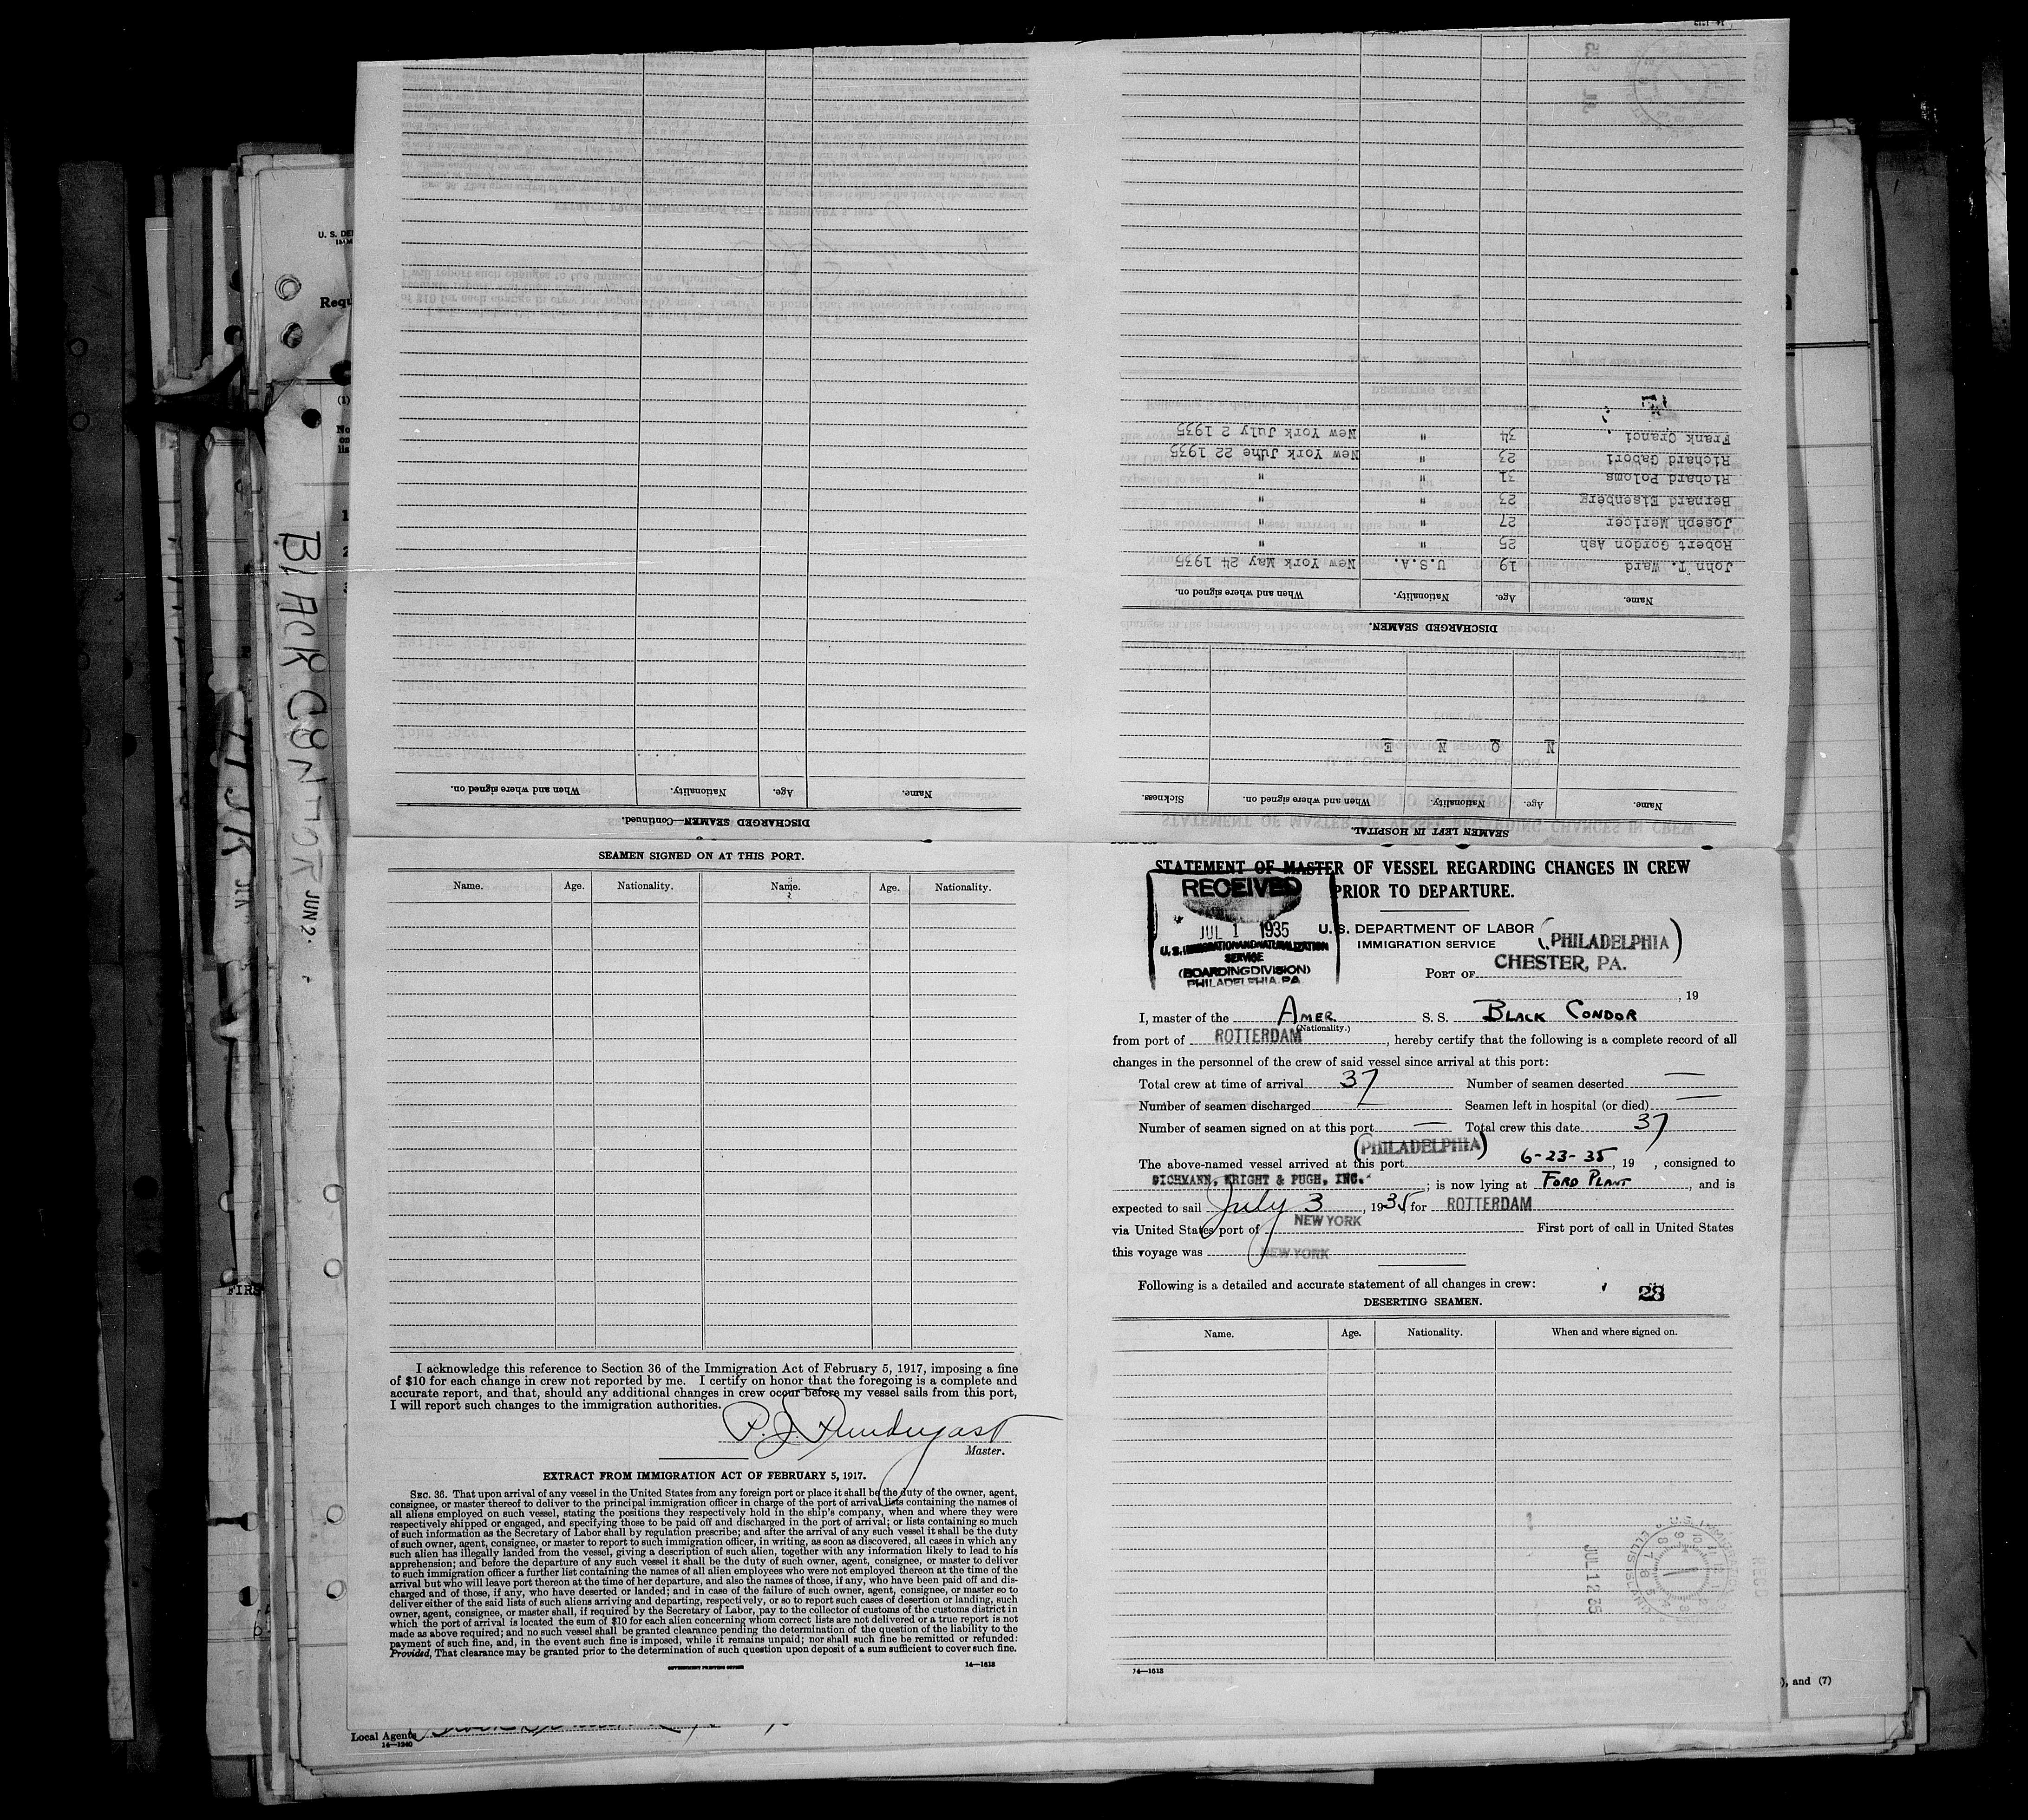 SEAMEN LEFT IN HOSPITAL.
Name. Age. Nationality. When and where signed on. Sickness.
N O N E
DISCHARGED SEAMEN.
Name. Age. Nationality. When and where signed on.
John T. Ward 19 U.S.A. New York May 24 1935
Robert Gordon Ash 25 " "
Joseph Mericer 27 " "
Bernard Eisenberg 23 " "
Richard Poloms 31 " "
Richard Gabori 23 " New York June 22 1935
Frank Cranci 34 " New York July 2 1935
DISCHARGED SEAMEN—Continued.
Name. Age. Nationality. When and where signed on.
SEAMEN SIGNED ON AT THIS PORT.
Name. Age. Nationality. Name. Age. Nationality.
I acknowledge this reference to Section 36 of the Immigration Act of February 5, 1917, imposing a fine
of $10 for each change in crew not reported by me. I certify on honor that the foregoing is a complete and
accurate report, and that, should any additional changes in crew occur before my vessel sails from this port,
I will report such changes to the immigration authorities.
P. J. Prendergast
Master.
EXTRACT FROM IMMIGRATION ACT OF FEBRUARY 5, 1917.
SEC. 36. That upon arrival of any vessel in the United States from any foreign port or place it shall be the duty of the owner, agent,
consignee, or master thereof to deliver to the principal immigration officer in charge of the port of arrival lists containing the names of
all aliens employed on such vessel, stating the positions they respectively hold in the ship's company, when and where they were
respectively shipped or engaged, and specifying those to be paid off and discharged in the port of arrival; or lists containing so much
of such information as the Secretary of Labor shall by regulation prescribe; and after the arrival of any such vessel it shall be the duty
of such owner, agent, consignee, or master to report to such immigration officer, in writing, as soon as discovered, all cases in which any
such alien has illegally landed from the vessel, giving a description of such alien, together with any information likely to lead to his
apprehension; and before the departure of any such vessel it shall be the duty of such owner, agent, consignee, or master to deliver
to such immigration officer a further list containing the names of all alien employees who were not employed thereon at the time of the
arrival but who will leave port thereon at the time of her departure, and also the names of those, if any, who have been paid off and dis-
charged and of those, if any, who have deserted or landed; and in case of the failure of such owner, agent, consignee, or master so to
deliver either of the said lists of such aliens arriving and departing, respectively, or so to report such cases of desertion or landing, such
owner, agent, consignee, or master shall, if required by the Secretary of Labor, pay to the collector of customs of the customs district in
which the port of arrival is located the sum of $10 for each alien concerning whom correct lists are not delivered or a true report is not
made as above required; and no such vessel shall be granted clearance pending the determination of the question of the liability to the
payment of such fine, and, in the event such fine is imposed, while it remains unpaid; nor shall such fine be remitted or refunded:
Provided, That clearance may be granted prior to the determination of such question upon deposit of a sum sufficient to cover such fine.
GOVERNMENT PRINTING OFFICE 14—1613
STATEMENT OF MASTER OF VESSEL REGARDING CHANGES IN CREW
PRIOR TO DEPARTURE.
RECEIVED
JUL 1 1935
U. S. IMMIGRATION AND NATURALIZATION
SERVICE
(BOARDING DIVISION)
PHILADELPHIA, PA.
U. S. DEPARTMENT OF LABOR
IMMIGRATION SERVICE
(PHILADELPHIA)
PORT OF CHESTER, PA.
, 19
I, master of the AMER S. S. BLACK CONDOR
(Nationality.)
from port of ROTTERDAM, hereby certify that the following is a complete record of all
changes in the personnel of the crew of said vessel since arrival at this port:
Total crew at time of arrival 37 Number of seamen deserted —
Number of seamen discharged — Seamen left in hospital (or died) —
Number of seamen signed on at this port — Total crew this date 37
(PHILADELPHIA)
The above-named vessel arrived at this port 6-23-35, 19 , consigned to
DICHMANN, WRIGHT & PUGH, INC. ; is now lying at FORD PLANT, and is
expected to sail July 3, 1935, for ROTTERDAM
via United States port of NEW YORK First port of call in United States
this voyage was NEW YORK
Following is a detailed and accurate statement of all changes in crew:
28
DESERTING SEAMEN.
Name. Age. Nationality. When and where signed on.
14—1613
JUL 12 35
BLACK CONDOR JUN 2
U. S. DE
Requ
FIRS
), and (7)
Local Agents
14—1240